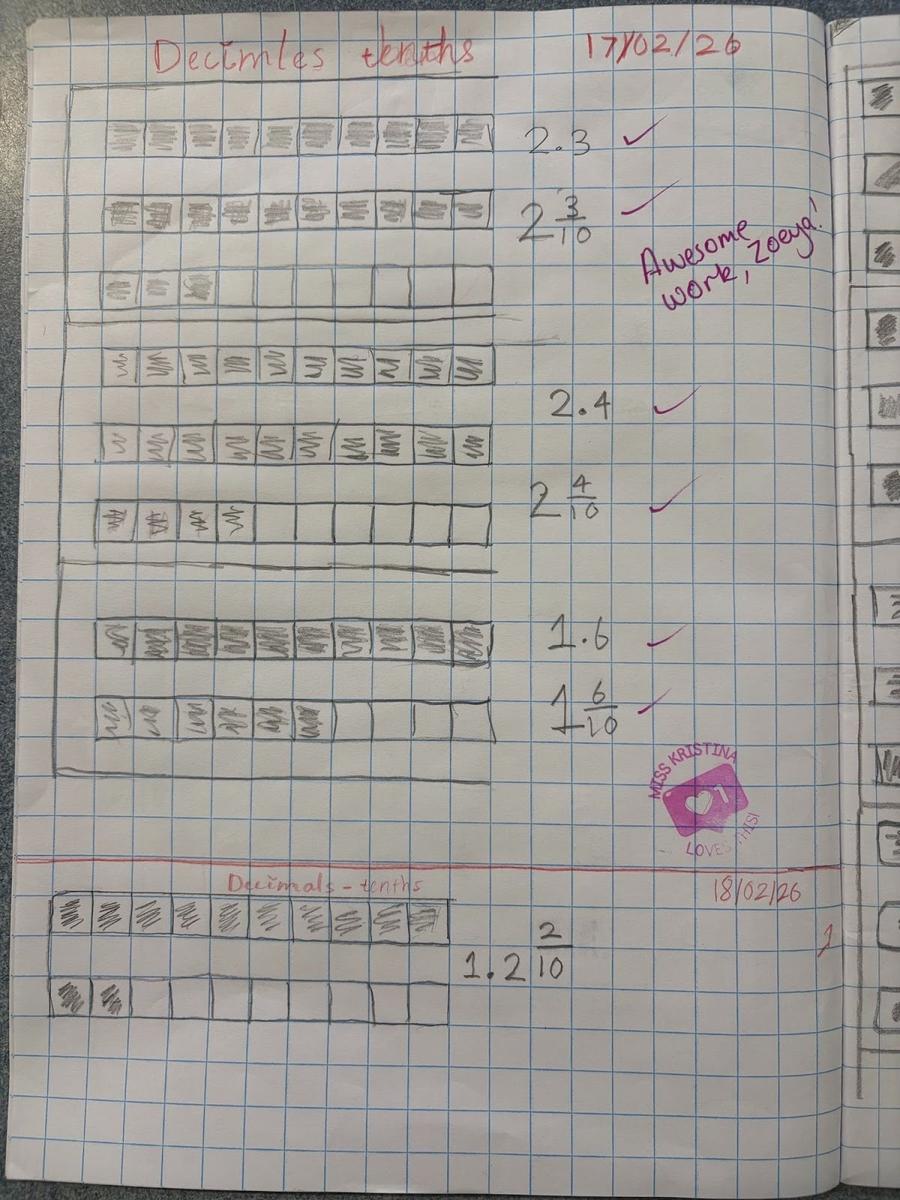 Decimles tenths 17/02/26
2.3 ✓
2 3/10 ✓
Awesome work, Zoeya!
2.4 ✓
2 4/10 ✓
1.6 ✓
1 6/10 ✓
MISS KRISTINA
1
LOVES THIS!
Decimals - tenths 18/02/26
1.2 2/10